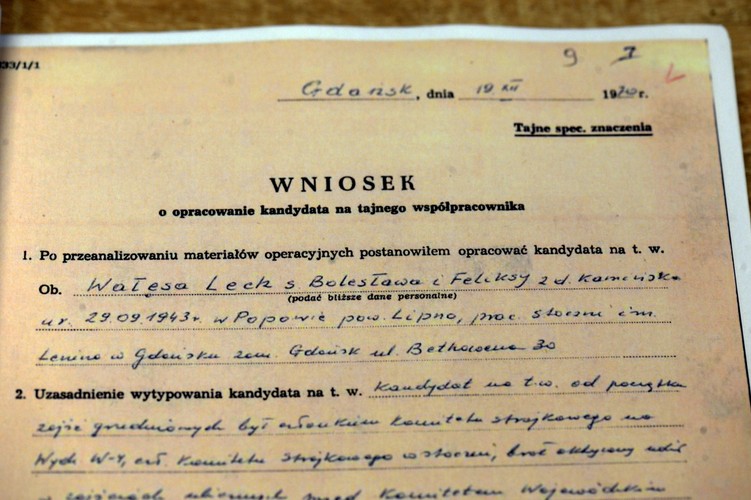 933/1/1
9 7
Gdańsk, dnia 19 XII 1970 r.
Tajne spec. znaczenia
WNIOSEK
o opracowanie kandydata na tajnego współpracownika
1. Po przeanalizowaniu materiałów operacyjnych postanowiłem opracować kandydata na t. w.
Ob. Wałęsa Lech s. Bolesława i Feliksy z d. Kamieńska
(podać bliższe dane personalne)
ur. 29.09.1943r. w Popowie pow. Lipno, prac. stoczni im.
Lenina w Gdańsku zam. Gdańsk ul. Bethowena 30
2. Uzasadnienie wytypowania kandydata na t. w. Kandydat na t.w. od początku
zajść grudniowych był członkiem Komitetu Strajkowego na
Wydz W-4, czł. Komitetu Strajkowego w stoczni, brał aktywny udział
w zajściach ulicznych przed Komitetem Wojewódzkim